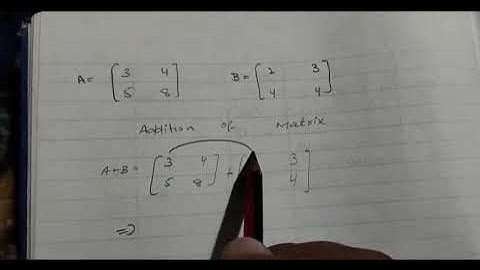 A= [3 4] B= [2 3]
[5 8] [4 4]
Addition of Matrix
A+B= [3 4] + [ 3]
[5 8] 4]
=>